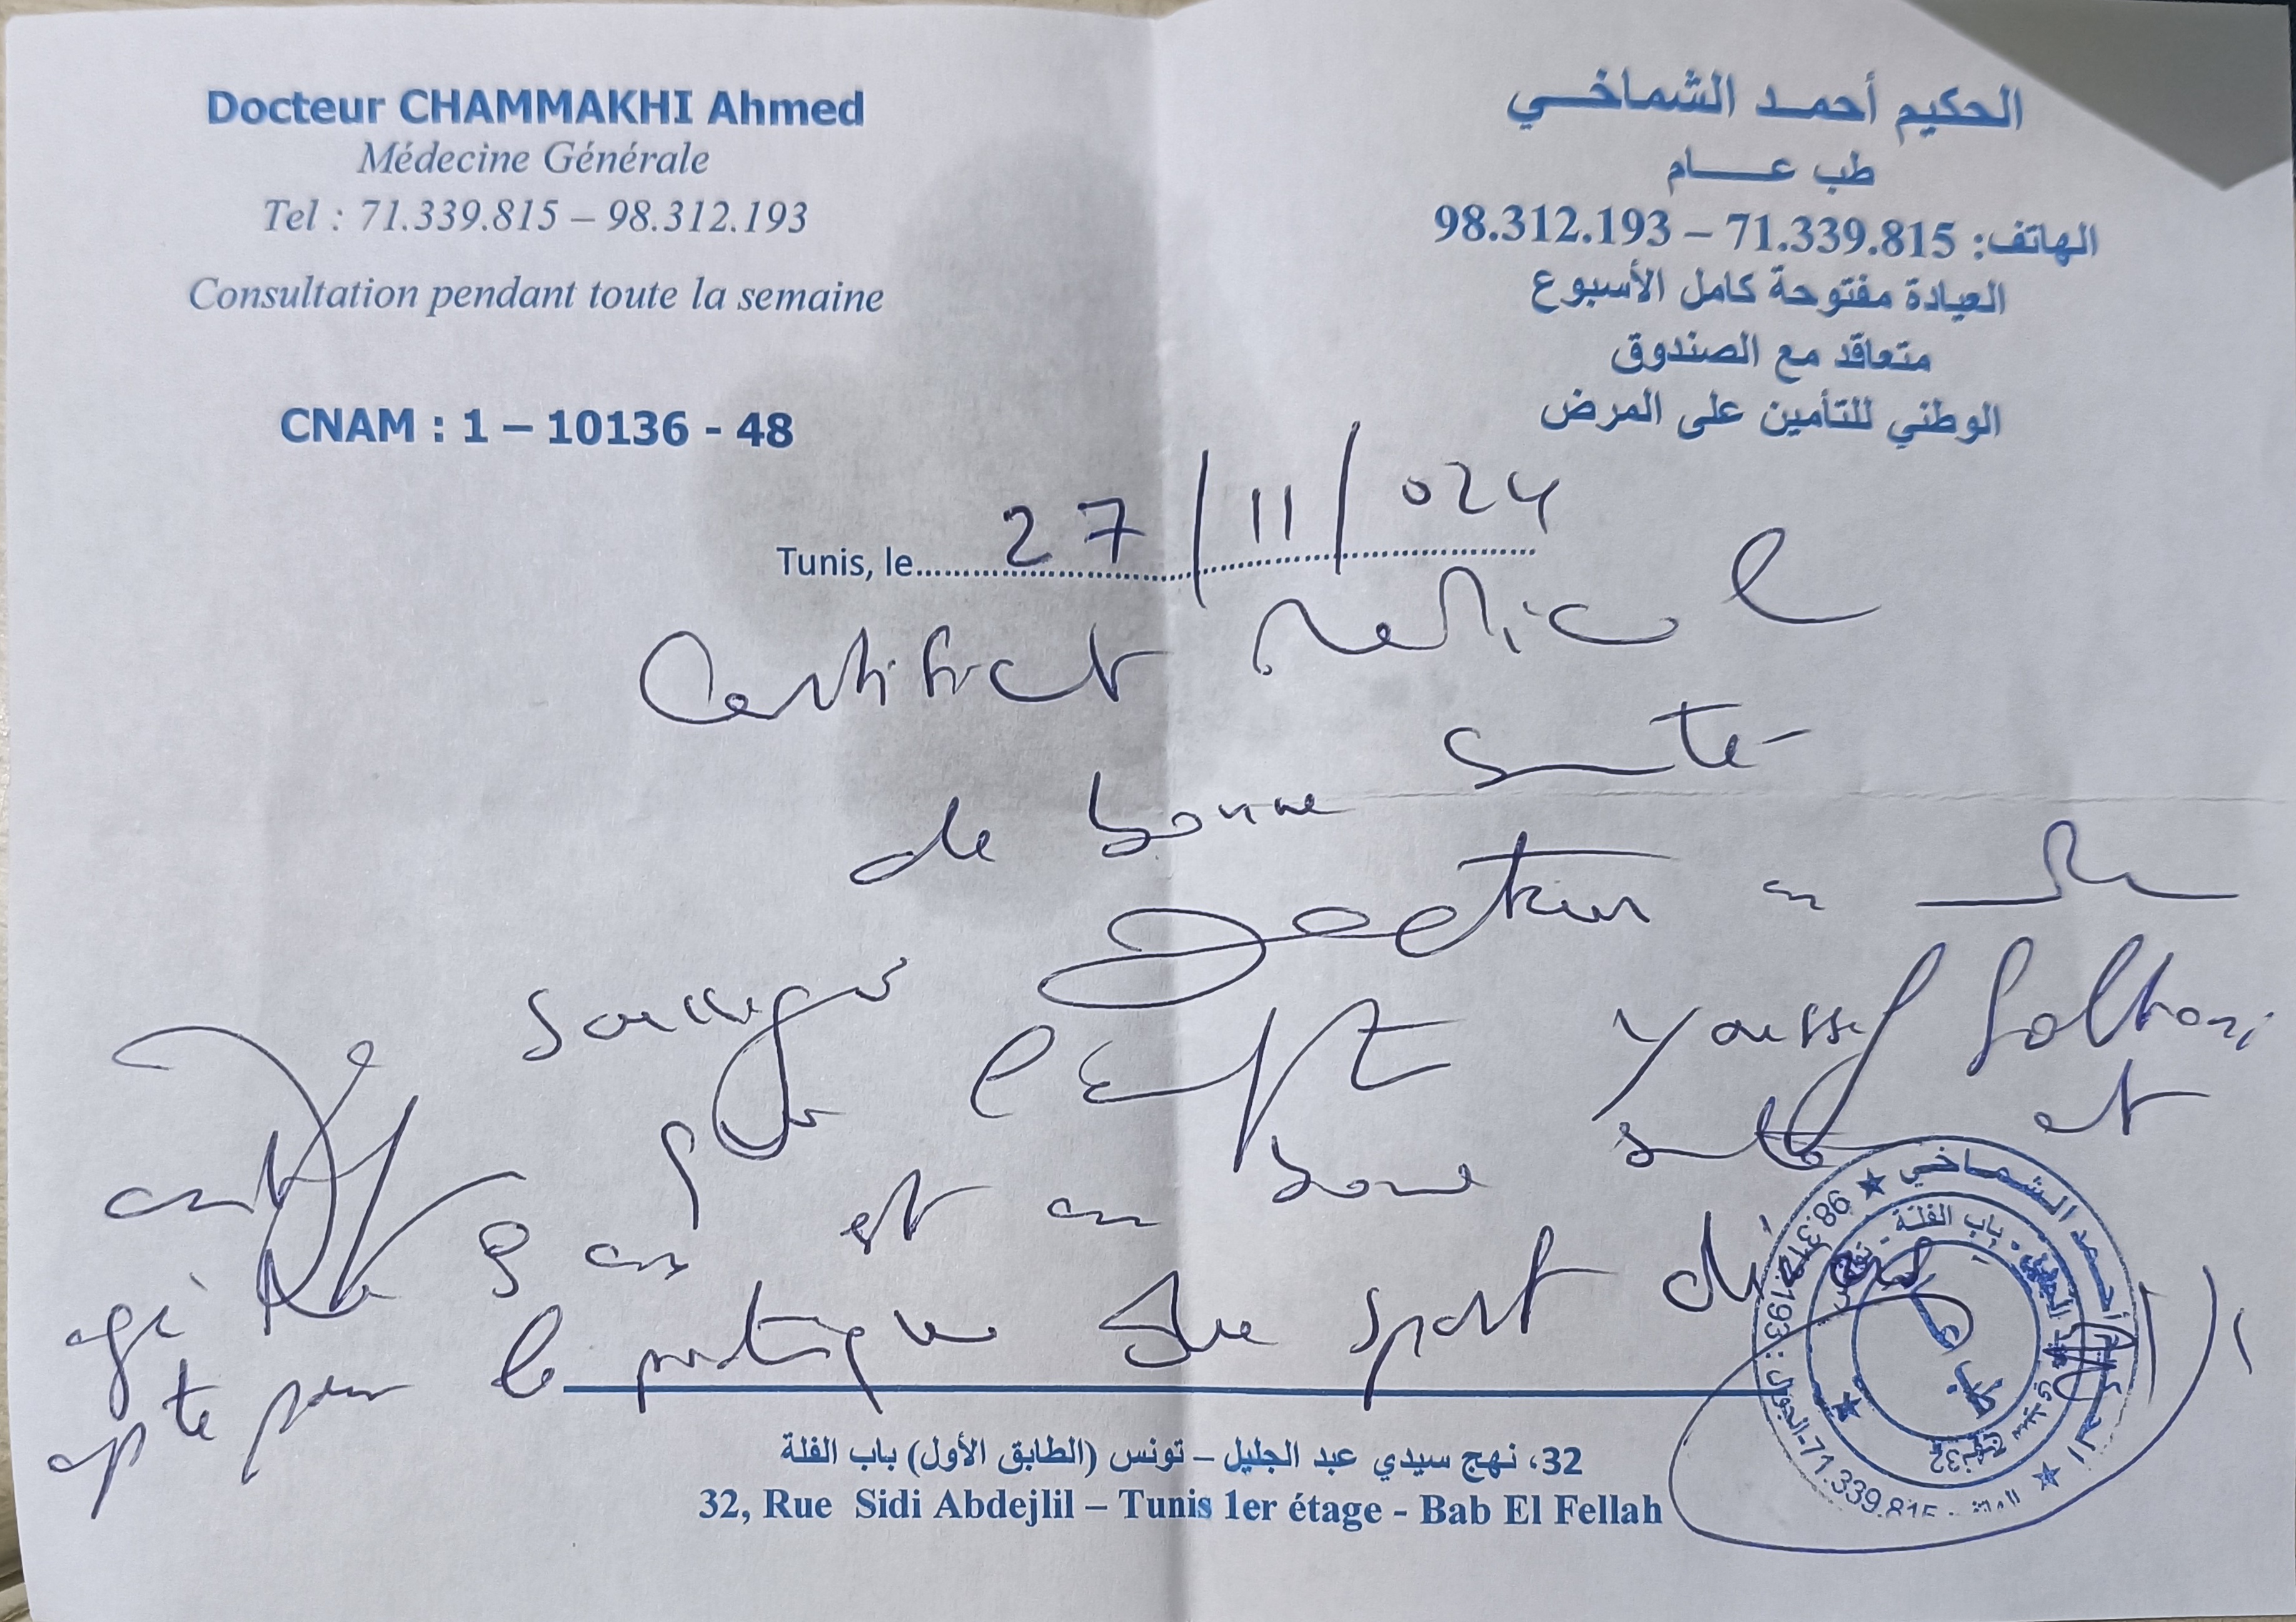 Docteur CHAMMAKHI Ahmed
Médecine Générale
Tel : 71.339.815 – 98.312.193
Consultation pendant toute la semaine
CNAM : 1 – 10136 - 48
الحكيم أحمد الشماخي
طب عام
الهاتف: 71.339.815 – 98.312.193
العيادة مفتوحة كامل الأسبوع
متعاقد مع الصندوق
الوطني للتأمين على المرض
Tunis, le 27/11/024
Certificat Medical
de bonne santé
Je soussigné Docteur en
certifie que l'enfant Youssef
agé de 9 ans est en bonne santé et
apte pour la pratique du sport
32، نهج سيدي عبد الجليل – تونس (الطابق الأول) باب الفلة
32, Rue Sidi Abdejlil – Tunis 1er étage - Bab El Fellah